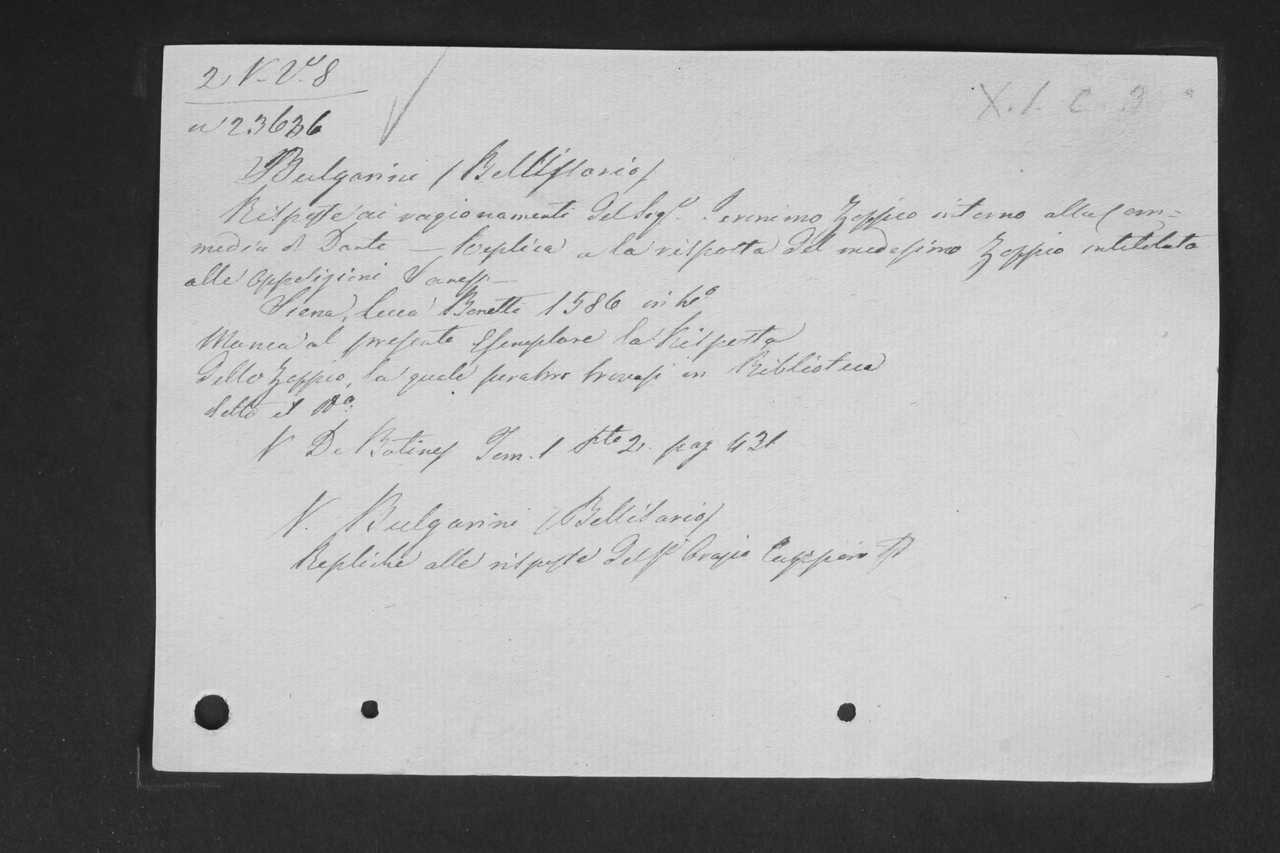 2 V. V. 8
X. 1. C. 3
n 23636
Bulgarini (Bellissario)
Risposte ai ragionamenti del Sigr. Jeronimo Zoppio intorno alla Com=
media di Dante — Replica a la risposta del medesimo Zoppio intitolata
alle opposizioni Sanesi —
Siena, Luca Bonetti 1586 in 4º
Manca al presente Esemplare la Risposta
dello Zoppio, la quale peraltro trovasi in Biblioteca
sotto il
V De Batines Tom. 1 pte 2. pag 431
V. Bulgarini (Bellisario)
Repliche alle risposte del Sr Orazio Capponi